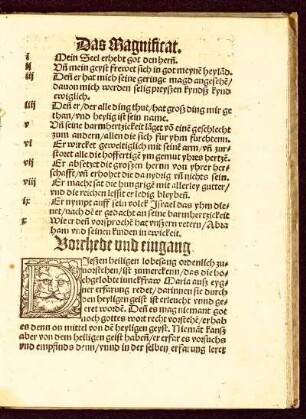 Das Magnificat.
i Mein Seel erhebt got den herrn.
ii Uñ mein geyst frewet sich in got meynẽ heylãd.
iij Deñ er hat mich seine geringe magd angesehẽ/
dauon mich werden selig preyßen kyndß kynd
ewiglich.
iiij Deñ er/der alle ding thut/hat groß ding mir ge
than/vnd heylig ist sein name.
v Uñ seine barmhertzickeit lãget võ einẽ geschlecht
zum andern/allen die sich fur yhm furchtenn.
vi Er wircket geweltiglich mit seinẽ arm/vñ zur-
storet alle die hoffertigẽ ym gemut yhres hertzẽ.
vij Er absetzet die großen herrn von yhrer hers-
chafft/vñ erhohet die da nydrig vñ nichts sein.
viij Er machet sat die hungrigẽ mit allerley gutter/
vnd die reichen lesset er ledig bleyben.
ix Er nympt auff sein volck Israel das yhm die-
net/nach dẽ er gedacht an seine barmhertzickeit
x Wie er den vorsprochẽ hat vnßern vetern/Abra
ham vnd seinen kinden in ewickeit.
Vorrhede vnd eingang
Dießen heiligen lobesang ordenlich zu
uorstehen/ist zumercken/das die ho
chgelobte iunckfraw Maria auß eyg
ner erfarung redet/darinnen sie durch
den heyligen geist ist erleucht vnnd ge
leret worden. Den es mag niemant got
noch gottes wort recht vorstehẽ/er hab
es denn on mittel von dẽ heyligen geyst. Niemãt kanß
aber von dem heiligen geist habeñ/er erfar es vorsuchs
vnd empfinds denn/vnnd in der selben erfarung leret